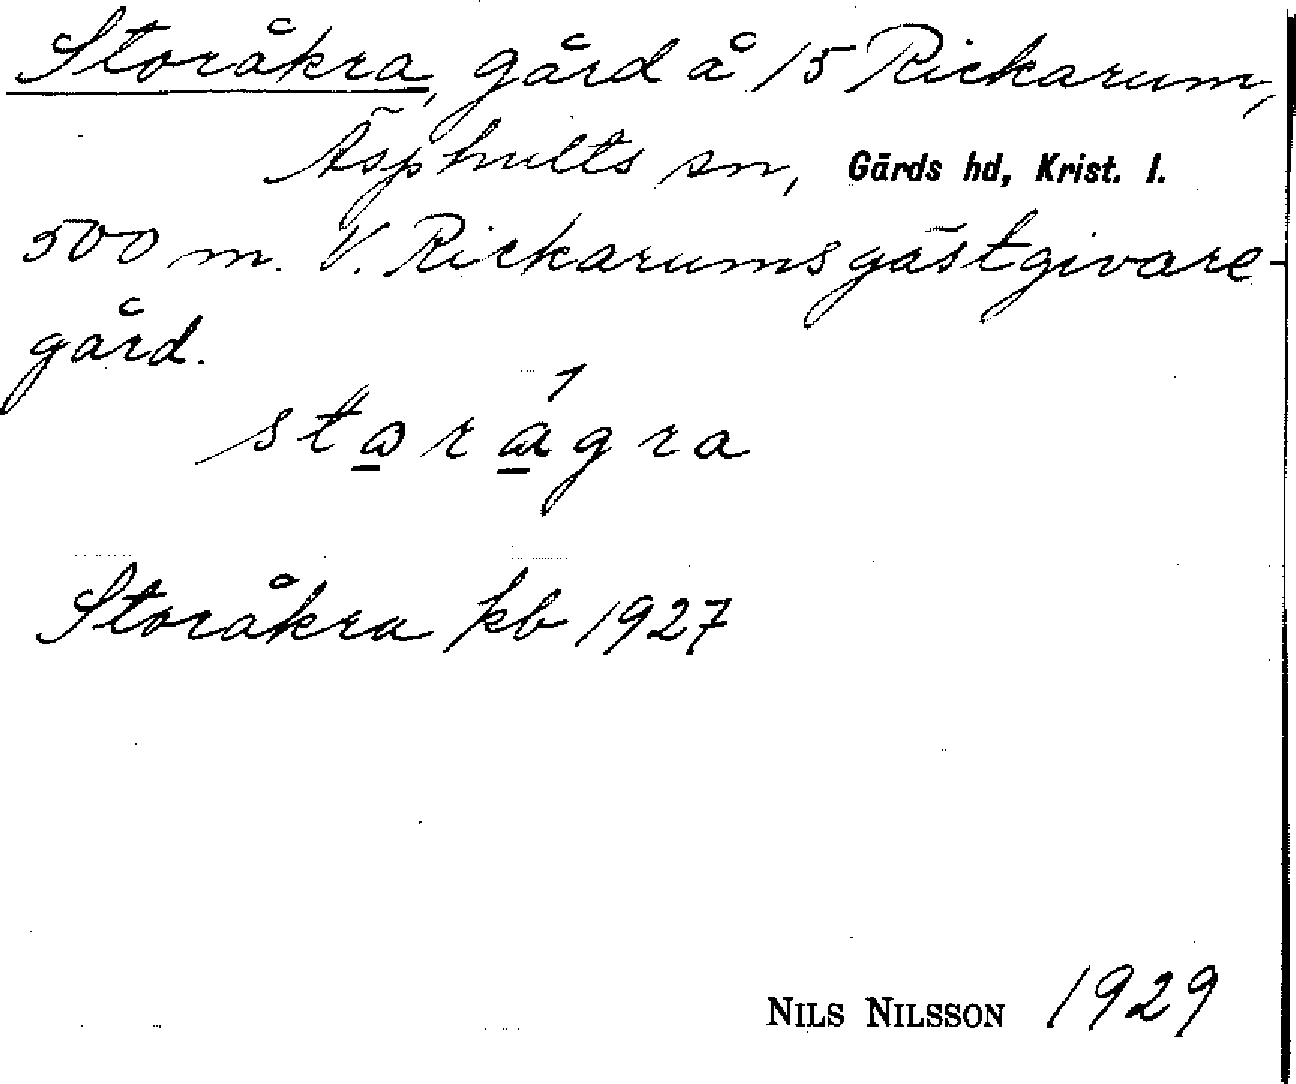 Storåkra, gård å 15 Rickarum,
Äsphults sn, Gärds hd, Krist. l.
500 m. V. Rickarums gästgivare-
gård.
storágra
Storåkra kb 1927
NILS NILSSON 1929